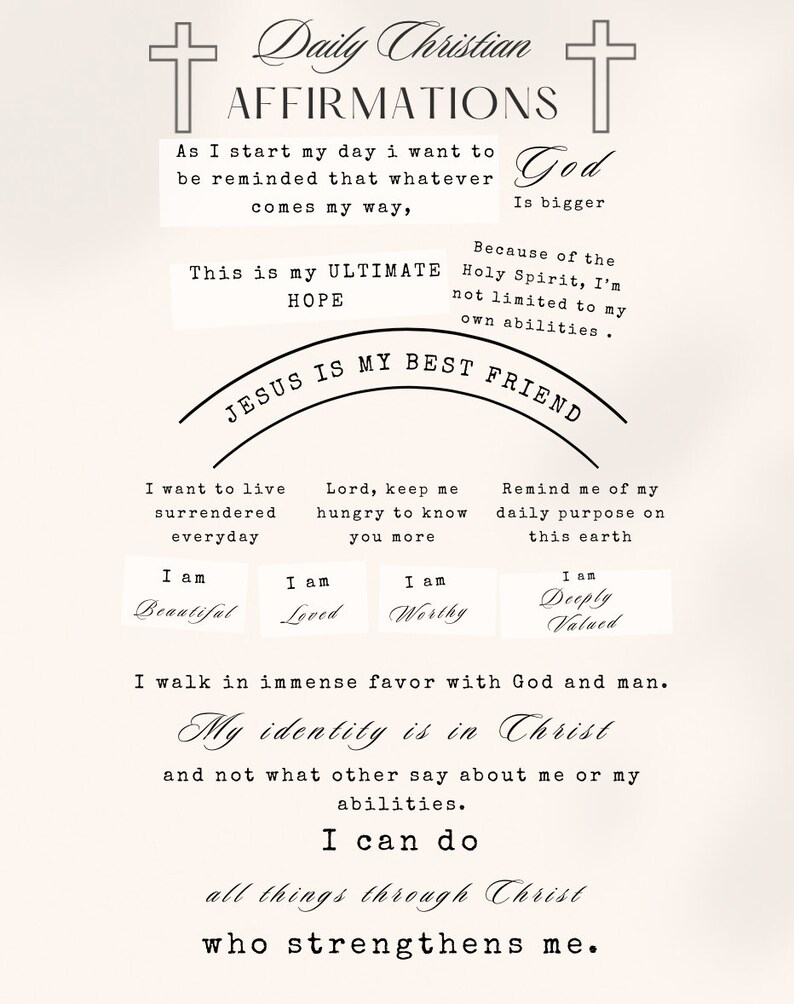 Daily Christian
AFFIRMATIONS
As I start my day i want to
be reminded that whatever
comes my way,
God
Is bigger
This is my ULTIMATE
HOPE
Because of the
Holy Spirit, I'm
not limited to my
own abilities .
JESUS IS MY BEST FRIEND
I want to live
surrendered
everyday
Lord, keep me
hungry to know
you more
Remind me of my
daily purpose on
this earth
I am
Beautiful
I am
Loved
I am
Worthy
I am
Deeply
Valued
I walk in immense favor with God and man.
My identity is in Christ
and not what other say about me or my
abilities.
I can do
all things through Christ
who strengthens me.